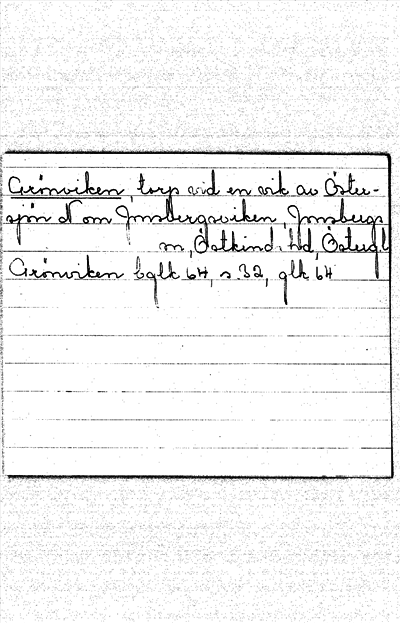 Grönviken, torp vid en vik av Öster-
sjön N om Jonsbergsviken, Jonsbergs
sn, Östkind: hd, Östergl
Grönviken Eglk 64, s. 32, glk 64